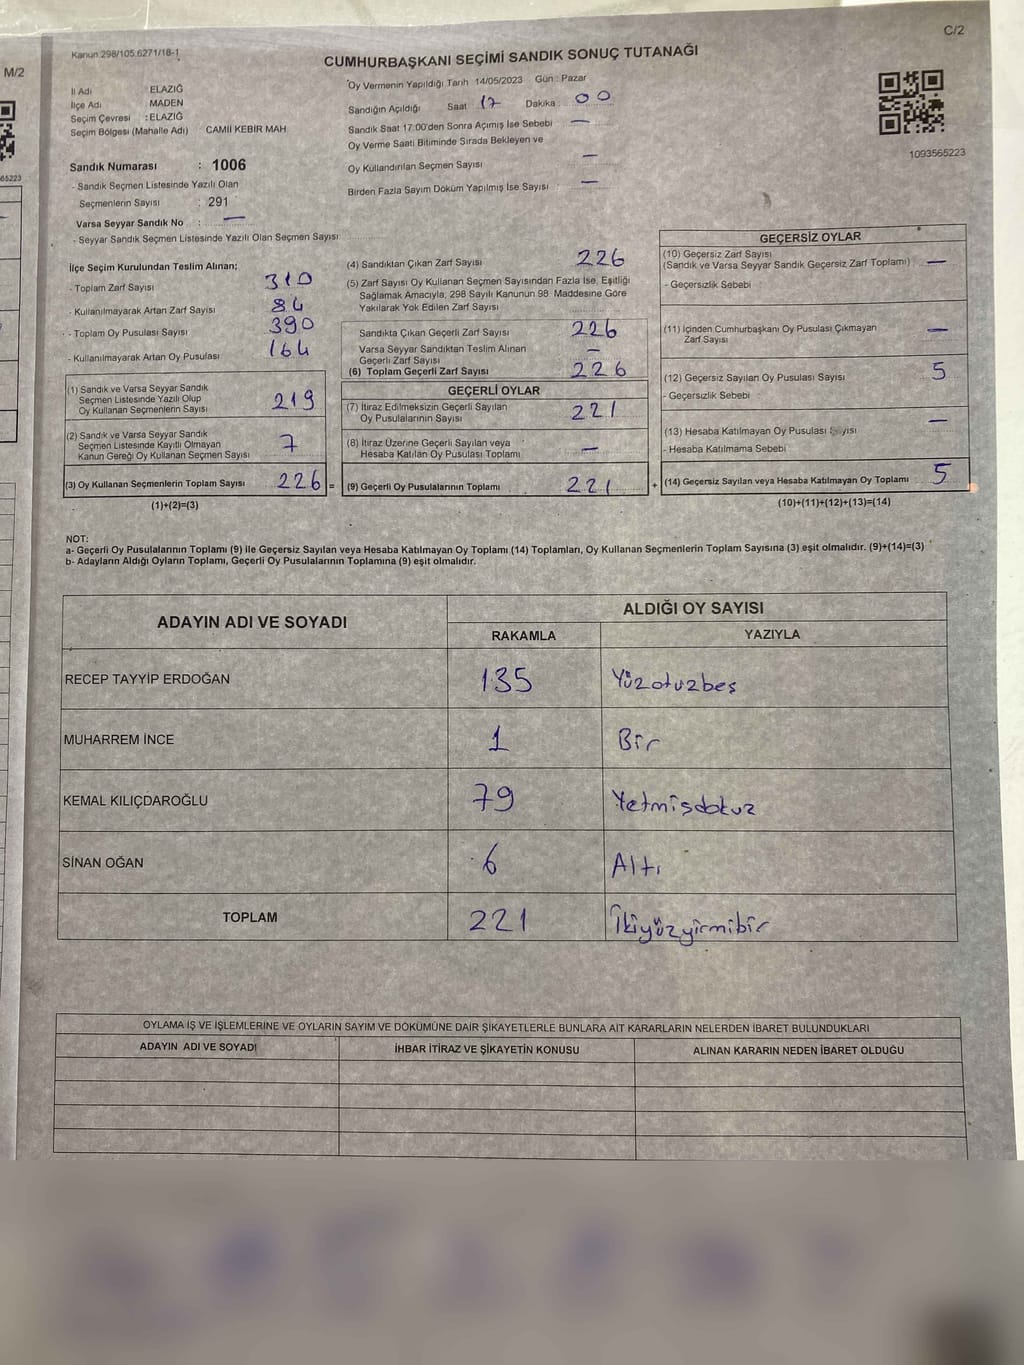 C/2
Kanun 298/105.6271/18-1
CUMHURBAŞKANI SEÇİMİ SANDIK SONUÇ TUTANAĞI
M/2
İl Adı : ELAZIĞ
İlçe Adı MADEN
Seçim Çevresi : ELAZIĞ
Seçim Bölgesi (Mahalle Adı) CAMİİ KEBİR MAH
Sandık Numarası : 1006
- Sandık Seçmen Listesinde Yazılı Olan
Seçmenlerin Sayısı : 291
Varsa Seyyar Sandık No : —
- Seyyar Sandık Seçmen Listesinde Yazılı Olan Seçmen Sayısı
Oy Vermenin Yapıldığı Tarih 14/05/2023 Gün : Pazar
Sandığın Açıldığı Saat 17 Dakika 00
Sandık Saat 17:00'den Sonra Açımış İse Sebebi —
Oy Verme Saati Bitiminde Sırada Bekleyen ve
Oy Kullandırılan Seçmen Sayısı —
Birden Fazla Sayım Döküm Yapılmış İse Sayısı : —
1093565223
65223
İlçe Seçim Kurulundan Teslim Alınan;
- Toplam Zarf Sayısı 310
- Kullanılmayarak Artan Zarf Sayısı 84
- Toplam Oy Pusulası Sayısı 390
- Kullanılmayarak Artan Oy Pusulası 164
(1) Sandık ve Varsa Seyyar Sandık
Seçmen Listesinde Yazılı Olup
Oy Kullanan Seçmenlerin Sayısı 219
(2) Sandık ve Varsa Seyyar Sandık
Seçmen Listesinde Kayıtlı Olmayan
Kanun Gereği Oy Kullanan Seçmen Sayısı 7
(3) Oy Kullanan Seçmenlerin Toplam Sayısı 226 =
(1)+(2)=(3)
(4) Sandıktan Çıkan Zarf Sayısı 226
(5) Zarf Sayısı Oy Kullanan Seçmen Sayısından Fazla İse, Eşitliği
Sağlamak Amacıyla, 298 Sayılı Kanunun 98 Maddesine Göre
Yakılarak Yok Edilen Zarf Sayısı
Sandıkta Çıkan Geçerli Zarf Sayısı 226
Varsa Seyyar Sandıktan Teslim Alınan
Geçerli Zarf Sayısı —
(6) Toplam Geçerli Zarf Sayısı 226
GEÇERLİ OYLAR
(7) İtiraz Edilmeksizin Geçerli Sayılan
Oy Pusulalarının Sayısı 221
(8) İtiraz Üzerine Geçerli Sayılan veya
Hesaba Katılan Oy Pusulası Toplamı —
(9) Geçerli Oy Pusulalarının Toplamı 221 +
GEÇERSİZ OYLAR
(10) Geçersiz Zarf Sayısı
(Sandık ve Varsa Seyyar Sandık Geçersiz Zarf Toplamı) —
- Geçersizlik Sebebi
(11) İçinden Cumhurbaşkanı Oy Pusulası Çıkmayan
Zarf Sayısı —
(12) Geçersiz Sayılan Oy Pusulası Sayısı 5
- Geçersizlik Sebebi
(13) Hesaba Katılmayan Oy Pusulası Sayısı —
- Hesaba Katılmama Sebebi
(14) Geçersiz Sayılan veya Hesaba Katılmayan Oy Toplamı 5
(10)+(11)+(12)+(13)=(14)
NOT:
a- Geçerli Oy Pusulalarının Toplamı (9) ile Geçersiz Sayılan veya Hesaba Katılmayan Oy Toplamı (14) Toplamları, Oy Kullanan Seçmenlerin Toplam Sayısına (3) eşit olmalıdır. (9)+(14)=(3)
b- Adayların Aldığı Oyların Toplamı, Geçerli Oy Pusulalarının Toplamına (9) eşit olmalıdır.
ADAYIN ADI VE SOYADI ALDIĞI OY SAYISI
RAKAMLA YAZIYLA
RECEP TAYYİP ERDOĞAN 135 Yüzotuzbeş
MUHARREM İNCE 1 Bir
KEMAL KILIÇDAROĞLU 79 Yetmişdokuz
SİNAN OĞAN 6 Altı
TOPLAM 221 İkiyüzyirmibir
OYLAMA İŞ VE İŞLEMLERİNE VE OYLARIN SAYIM VE DÖKÜMÜNE DAİR ŞİKAYETLERLE BUNLARA AİT KARARLARIN NELERDEN İBARET BULUNDUKLARI
ADAYIN ADI VE SOYADI İHBAR İTİRAZ VE ŞİKAYETİN KONUSU ALINAN KARARIN NEDEN İBARET OLDUĞU